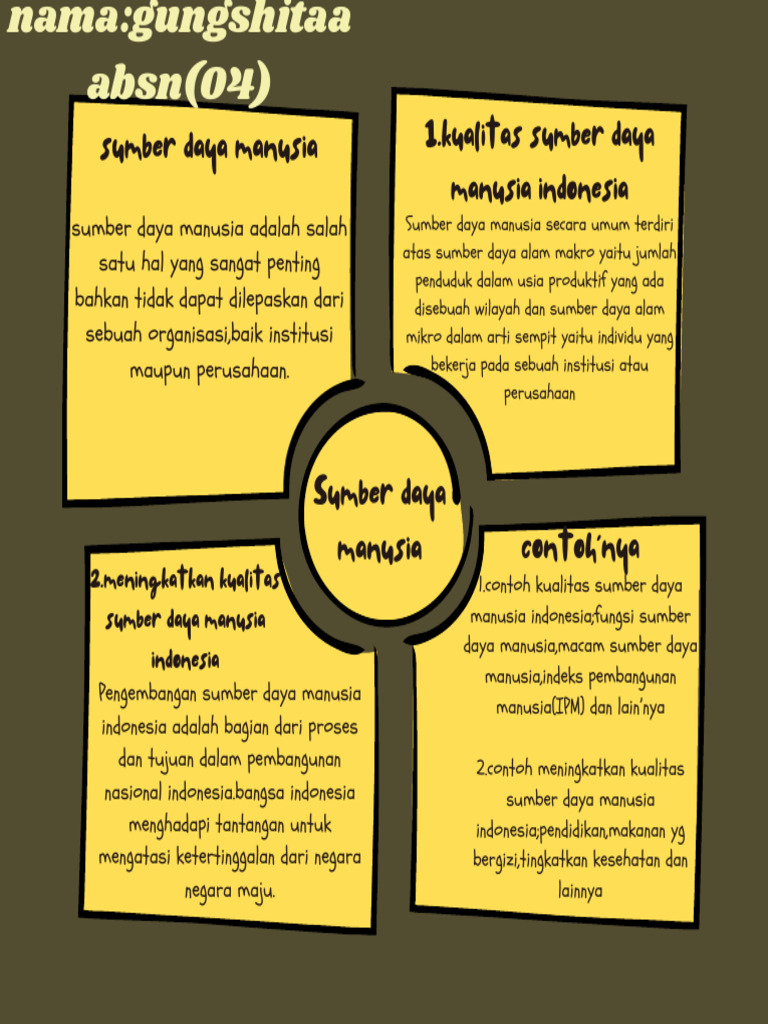 nama:gungshitaa
absn(04)
sumber daya manusia
sumber daya manusia adalah salah
satu hal yang sangat penting
bahkan tidak dapat dilepaskan dari
sebuah organisasi,baik institusi
maupun perusahaan.
1.kualitas sumber daya
manusia indonesia
Sumber daya manusia secara umum terdiri
atas sumber daya alam makro yaitu jumlah
penduduk dalam usia produktif yang ada
disebuah wilayah dan sumber daya alam
mikro dalam arti sempit yaitu individu yang
bekerja pada sebuah institusi atau
perusahaan
Sumber daya
manusia
2.meningkatkan kualitas
sumber daya manusia
indonesia
Pengembangan sumber daya manusia
indonesia adalah bagian dari proses
dan tujuan dalam pembangunan
nasional indonesia.bangsa indonesia
menghadapi tantangan untuk
mengatasi ketertinggalan dari negara
negara maju.
contoh'nya
1.contoh kualitas sumber daya
manusia indonesia;fungsi sumber
daya manusia,macam sumber daya
manusia,indeks pembangunan
manusia(IPM) dan lain'nya
2.contoh meningkatkan kualitas
sumber daya manusia
indonesia;pendidikan,makanan yg
bergizi,tingkatkan kesehatan dan
lainnya